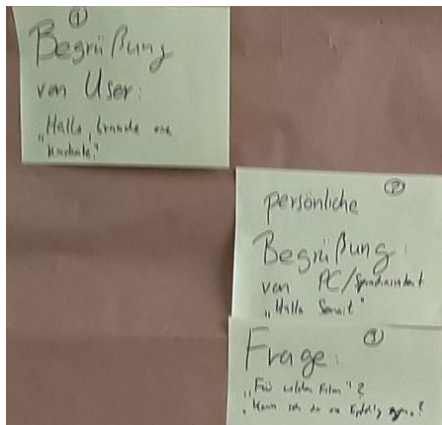 ①
Begrüßung
von User:
„Hallo, brauche eine
②
persönliche
Begrüßung:
von PC/Sprachassistent
„Hallo
③
Frage:
„Für welchen Film"?
„Kann ich dir eine